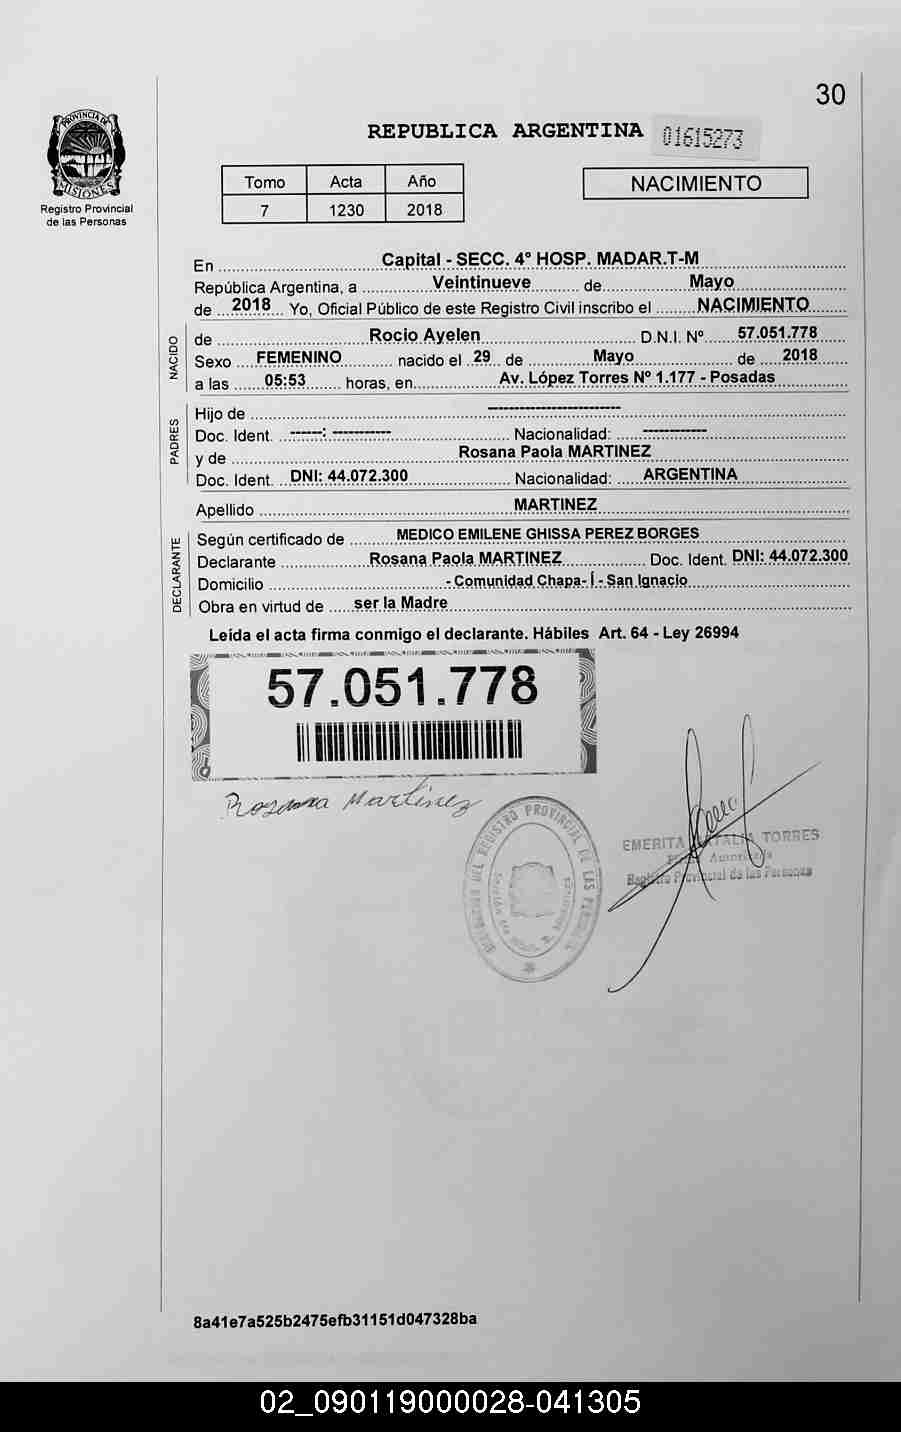 30
PROVINCIA DE
MISIONES
Registro Provincial
de las Personas
REPUBLICA ARGENTINA
01615273
Tomo Acta Año
7 1230 2018
NACIMIENTO
En Capital - SECC. 4° HOSP. MADAR.T-M
República Argentina, a Veintinueve de Mayo
de 2018 Yo, Oficial Público de este Registro Civil inscribo el NACIMIENTO
NACIDO
de Rocio Ayelen D.N.I. Nº 57.051.778
Sexo FEMENINO nacido el 29 de Mayo de 2018
a las 05:53 horas, en Av. López Torres Nº 1.177 - Posadas
PADRES
Hijo de ------------------------
Doc. Ident. ------: ----------- Nacionalidad: ------------
y de Rosana Paola MARTINEZ
Doc. Ident. DNI: 44.072.300 Nacionalidad: ARGENTINA
Apellido MARTINEZ
DECLARANTE
Según certificado de MEDICO EMILENE GHISSA PEREZ BORGES
Declarante Rosana Paola MARTINEZ Doc. Ident. DNI: 44.072.300
Domicilio - Comunidad Chapa- Í - San Ignacio
Obra en virtud de ser la Madre
Leída el acta firma conmigo el declarante. Hábiles Art. 64 - Ley 26994
57.051.778
Rosana Martinez
REGISTRO PROVINCIAL DE LAS PERSONAS
EMERITA NATALIA TORRES
Autorizada
Registro Provincial de las Personas
8a41e7a525b2475efb31151d047328ba
02_090119000028-041305